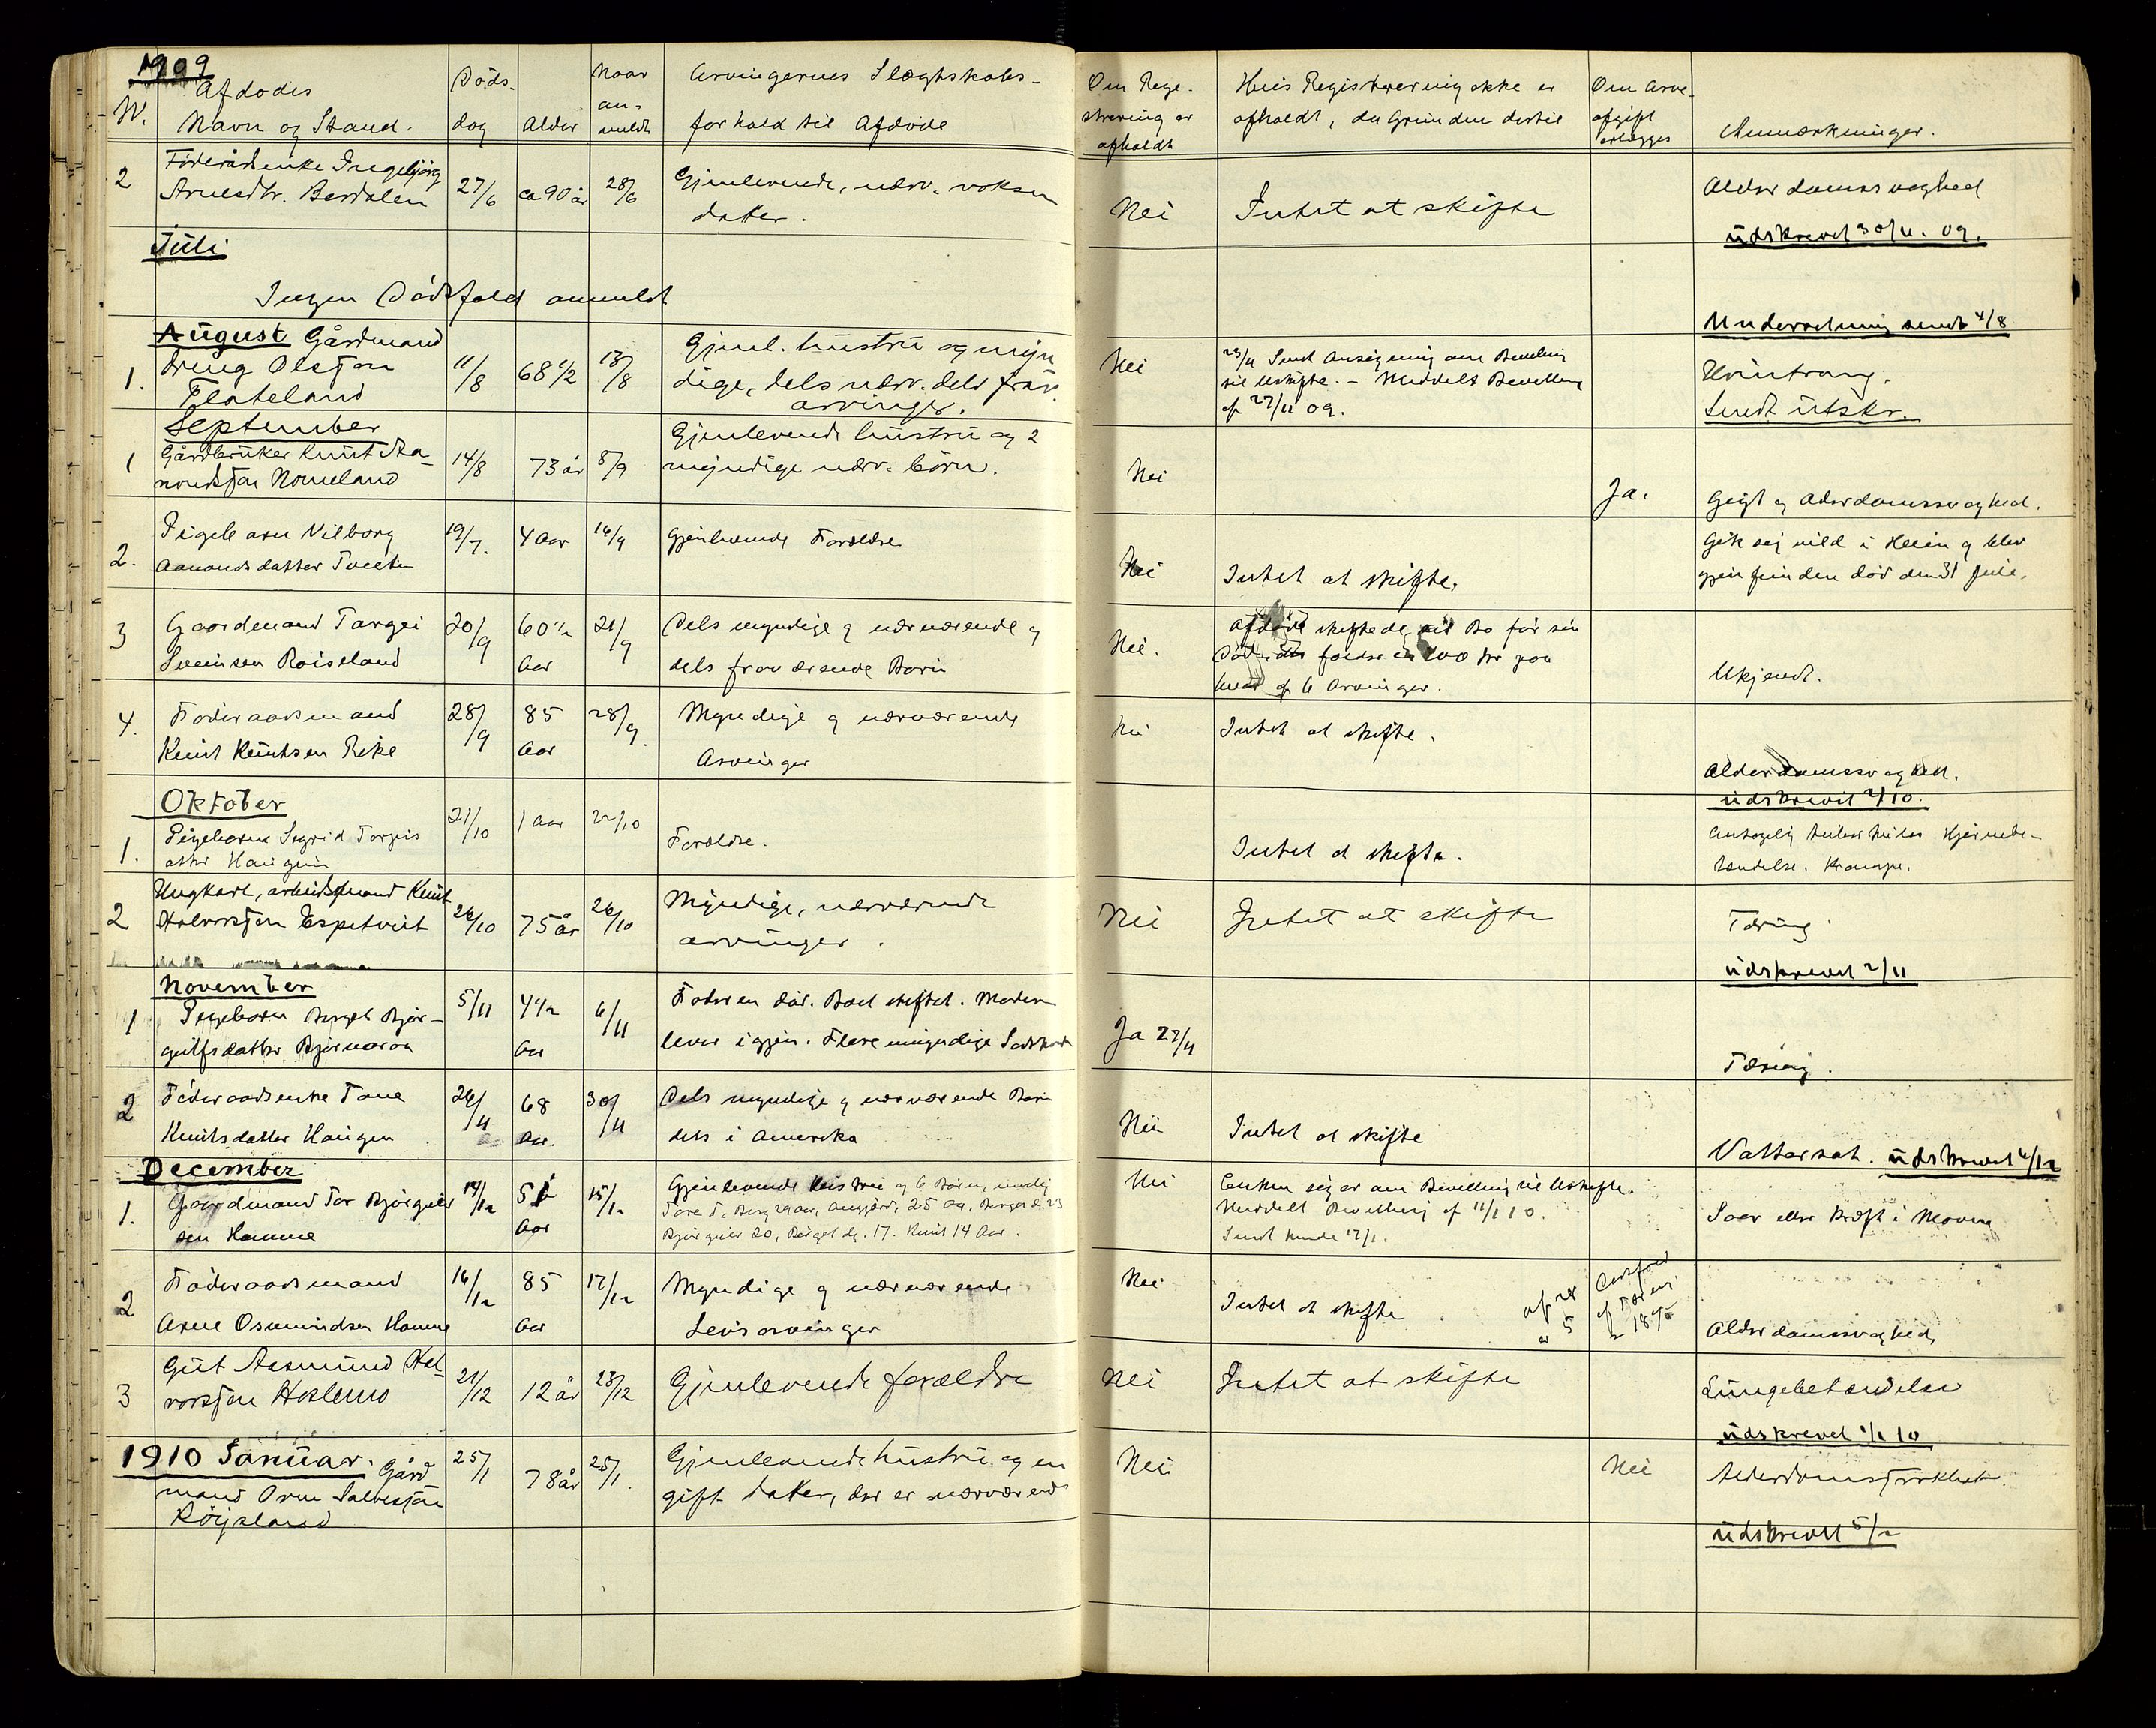 1909
N.
Afdødes
Navn og Stand.
Døds-
dag
Alder
Naar
an-
meldt
Arvingernes Slægtskabs-
forhold til Afdøde
Om Rege-
strering er
afholdt
Hvis Registrering ikke er
afholdt, da Grunden dertil
Om Arve-
afgift
erlægges
Anmærkninger.
2
Føderådsenke Ingebjørg
Arnesdtr. Berdalen
27/6
ca 90 år
28/6
Gjenlevende, nærv. voksen
datter.
Nei
Intet at skifte
Alderdomssvaghed
üdskrevet 30/6. 09.
Juli
Ingen Dødsfald anmeldt
Underretning sendt 4/8
August Gårdmand
1.
Dreug Olsson
Flateland
11/8
68 1/2
13/8
Gjenl. hustru og myn
dige, dels nærv. dels frav.
arvinger.
Nei
23/11 Sendt Ansøgning om Bevilling
til Uskifte. – Meddelt Bevilling
af 27/11 09.
Sendt ütskr.
September
1
Gårdbruker Knut Aa-
nondsson Nomeland
14/8
73 år
8/9
Gjenlevende hustru og 2
myndige nærv. børn.
Nei
Ja.
Gigt og Alderdomssvaghed.
2.
Pigebarn Vilborg
Aanonds datter Tveiten
19/7.
4 Aar
16/9
Gjenlevende Forældre
Nei
Intet at skifte.
Gik sig vild i Heien og blev
gjenfunden död den 31 Juli.
3
Gaardmand Targei
Sveinsen Roiseland
20/9
60 1/2
Aar
21/9
Dels myndige og nærværende og
dels fraværende Børn
Nei.
Afdøde skiftede sit Bo før sin
Död falder 100 Kr paa
hver af 6 Arvinger.
Ukjendt.
4.
Föderaadsmand
Knut Knutsen Rike
28/9
85
Aar
28/9.
Myndige og nærværende
Arvinger
Nei
Intet at skifte.
Alderdomssvaghed.
üdskrevet 2/10.
Oktober
1.
Pigebarn Sigrid Torgeis
datter Haugen
21/10
1 Aar
22/10
Forældre.
Intet at skifte.
Antagelig tuberkuløs Hjernebe-
tændelse. Krampe.
2
Ungkarl, arbeidsmand Knut
Halvorsson Espetveit
26/10
75 år
26/10
Myndige, nærværende
arvinger.
Nei
Intet at skifte
Tæring
üdskrevet 2/11
November
1
Pigebarn Birget Bjør-
gulfsdatter Bjørnaraa
5/11
4 1/2
Aar
6/11
Faderen död. Boet skiftet. Moderen
lever igjen. Flere umyndige Sødsken
Ja 27/11
Tæring.
2
Föderaadsenke Tone
Knutsdatter Haugen
26/11
68
Aar.
30/11
Dels myndige og nærværende Børn
dels i Amerika
Nei
Intet at skifte
Vattersot. üdskrevet 4/12
December
1.
Gaardmand Tor Bjørgulf
sen Homme
14/12
Aar
15/12
Gjenlevende Hustru og 6 Børn, nemlig
29 Aar, 25 Aar, 23
Bjørgulv 20, Birget dg. 17. Knut 14 Aar.
Nei
Enken søger om Bevilling til Uskifte.
Meddelt Bevilling af 11/1 10.
Sendt 17/1.
Saar eller Kræft i Maven
2
Föderaadsmand
Arne Osmundsen Homme
16/12
85
Aar
17/12
Myndige og nærværende
Livsarvinger
Nei
Intet at skifte
Alderdomssvaghed,
3
Gut Aasmund Hal-
vorsson Hoslemo
21/12
12 år
23/12
Gjenlevende forældre
Nei
Intet at skifte
Lungebetændelse
üdskrevet 1/1 10
1910 Januar. Gård
mand Orm Salvesson
Röysland
25/1
78 år
25/1.
Gjenlevende hustru og en
gift datter, der er nærværende
Nei
Nei
Alderdomsskrøbelighet.
üdskrevet 5/2